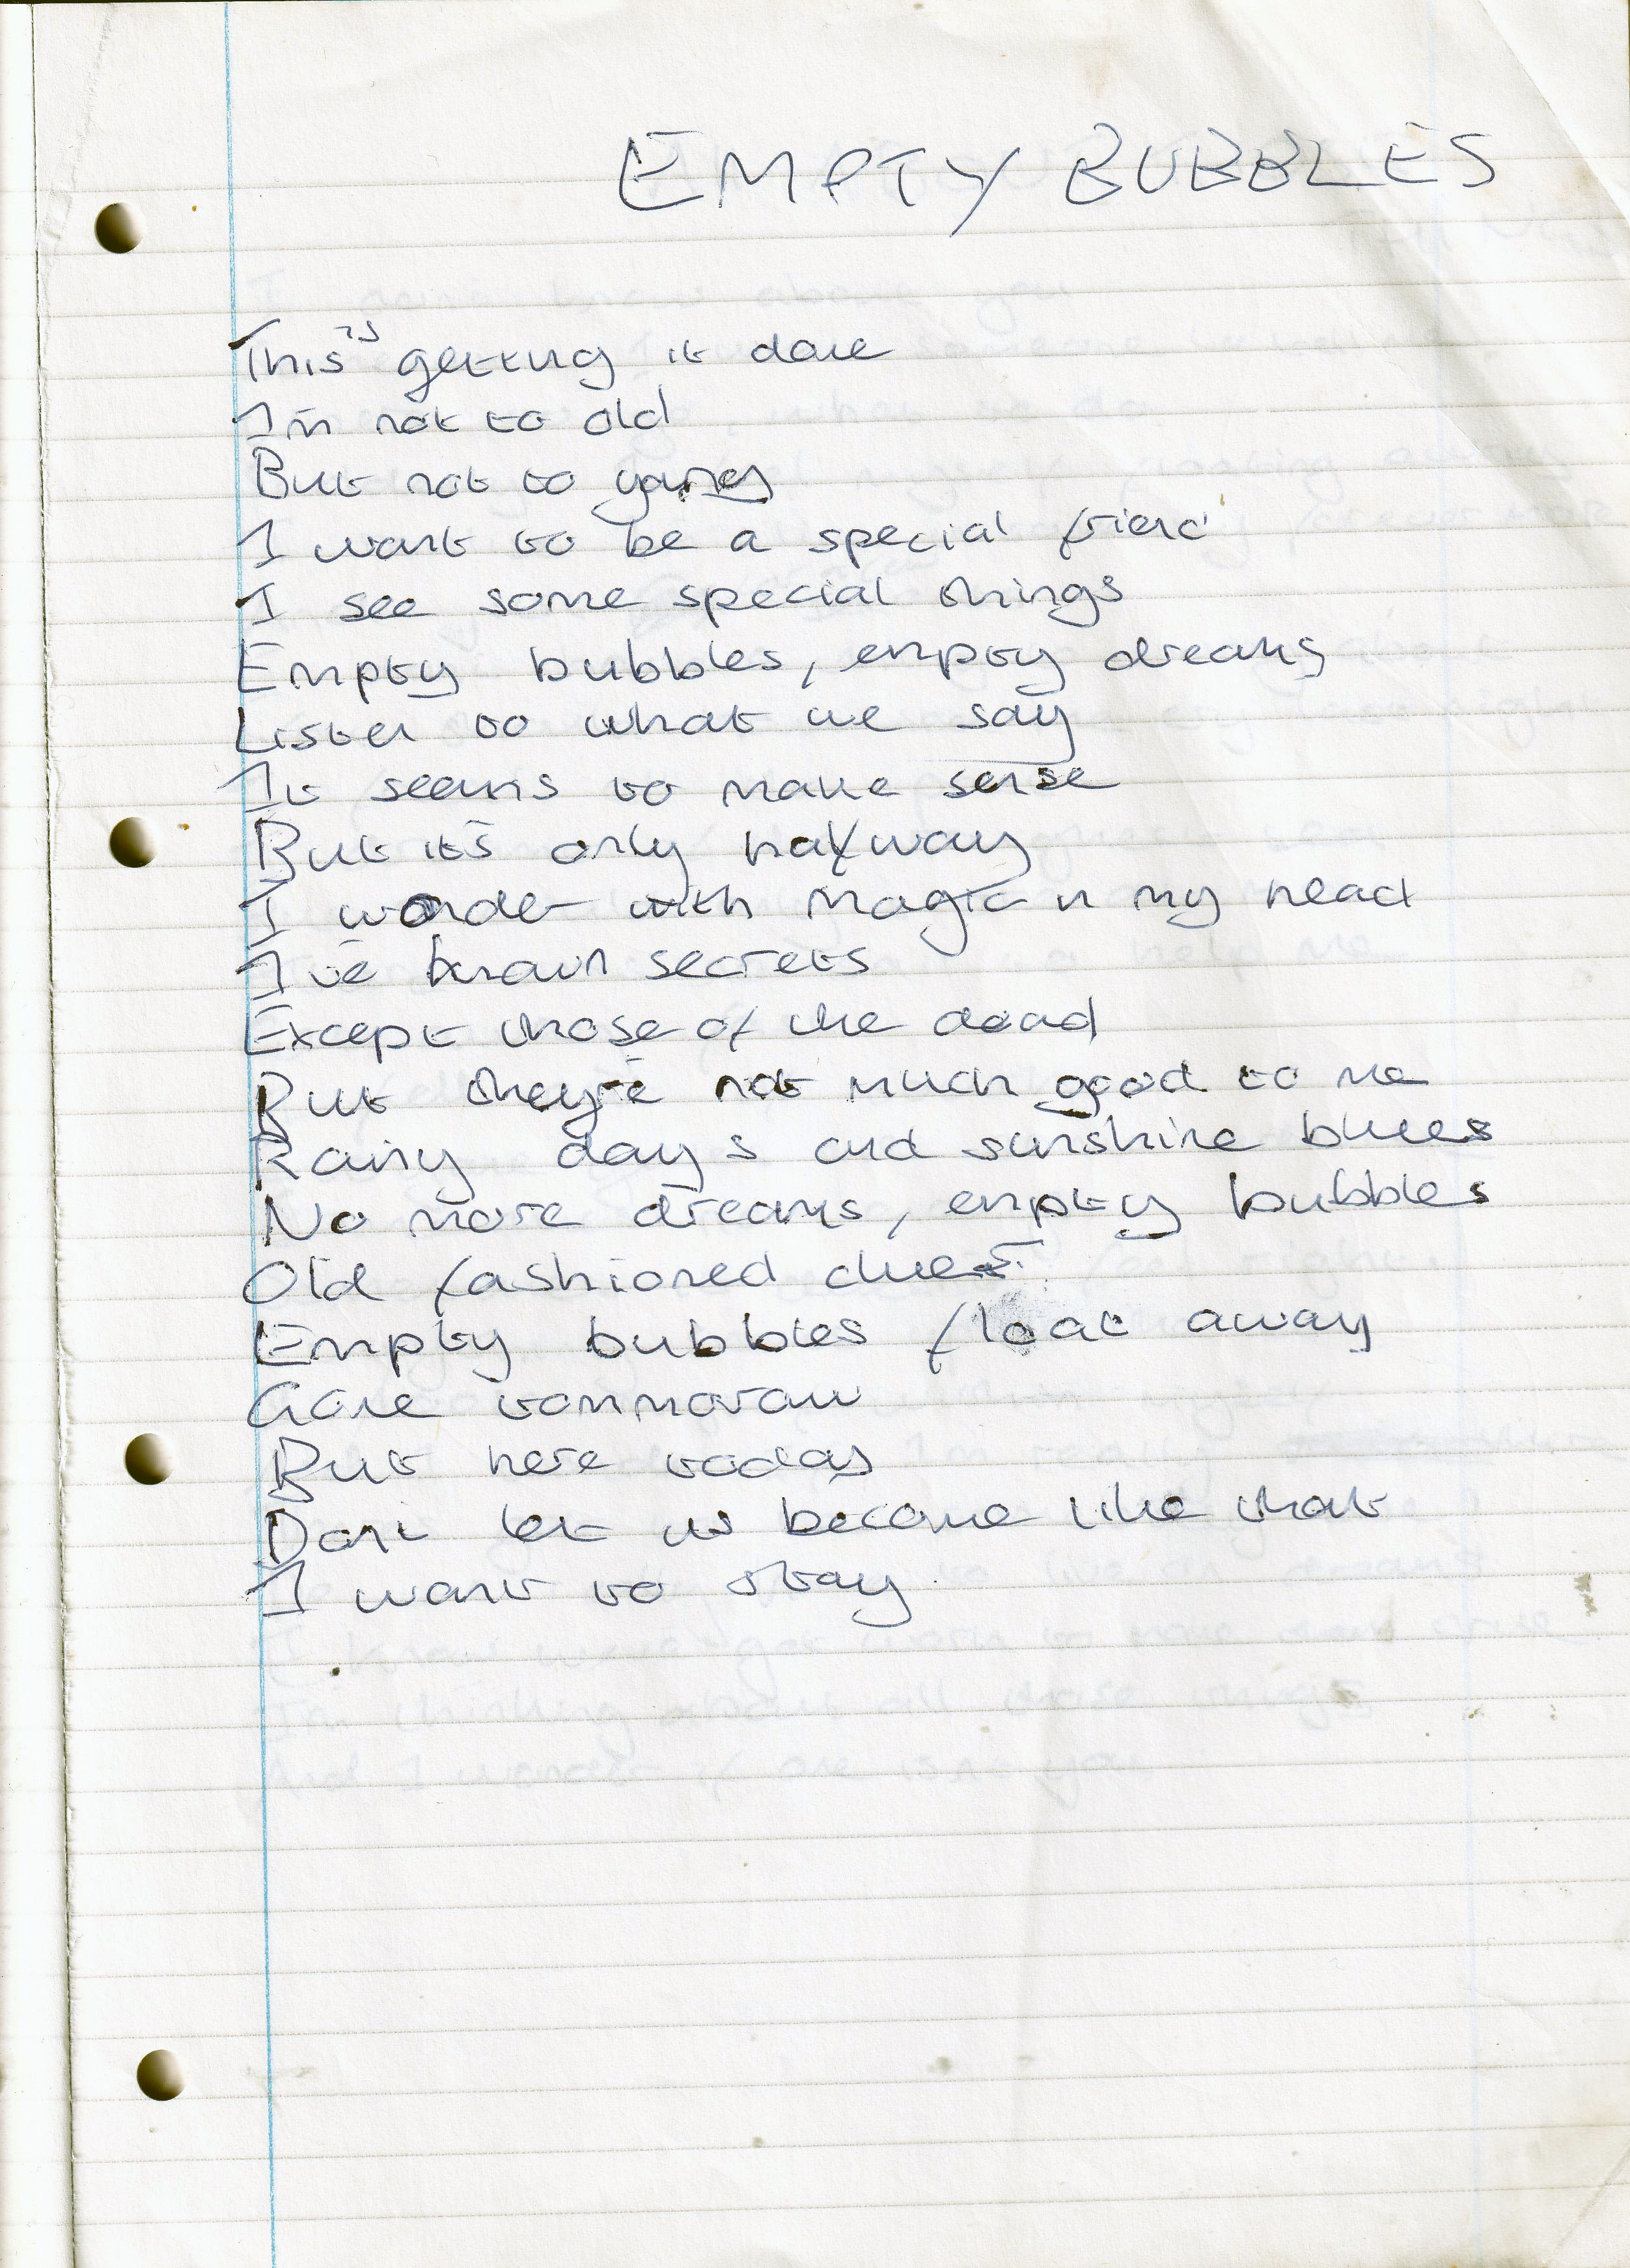 EMPTY BUBBLES
This is getting it done
I'm not to old
But not to young
I want to be a special friend
I see some special things
Empty bubbles, empty dreams
Listen to what we say
It seems to make sense
But it's only halfway
I wonder with magic in my head
I've known secrets
Except those of the dead
But they're not much good to me
Rainy days and sunshine blues
No more dreams, empty bubbles
Old fashioned clues
Empty bubbles float away
Gone tommorow
But here today
Don't let us become like that
I want to stay